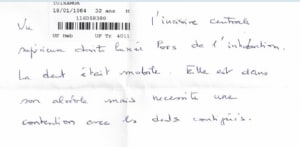 18/01/1984 32 ans M
116058380
UF Heb UF Tr 4011
Vu l'incisive centrale
supérieure droit luxée lors de l'intubation.
La dent était mobile. Elle est dans
son alvéole mais nécessite une
contention avec les dents contiguës.